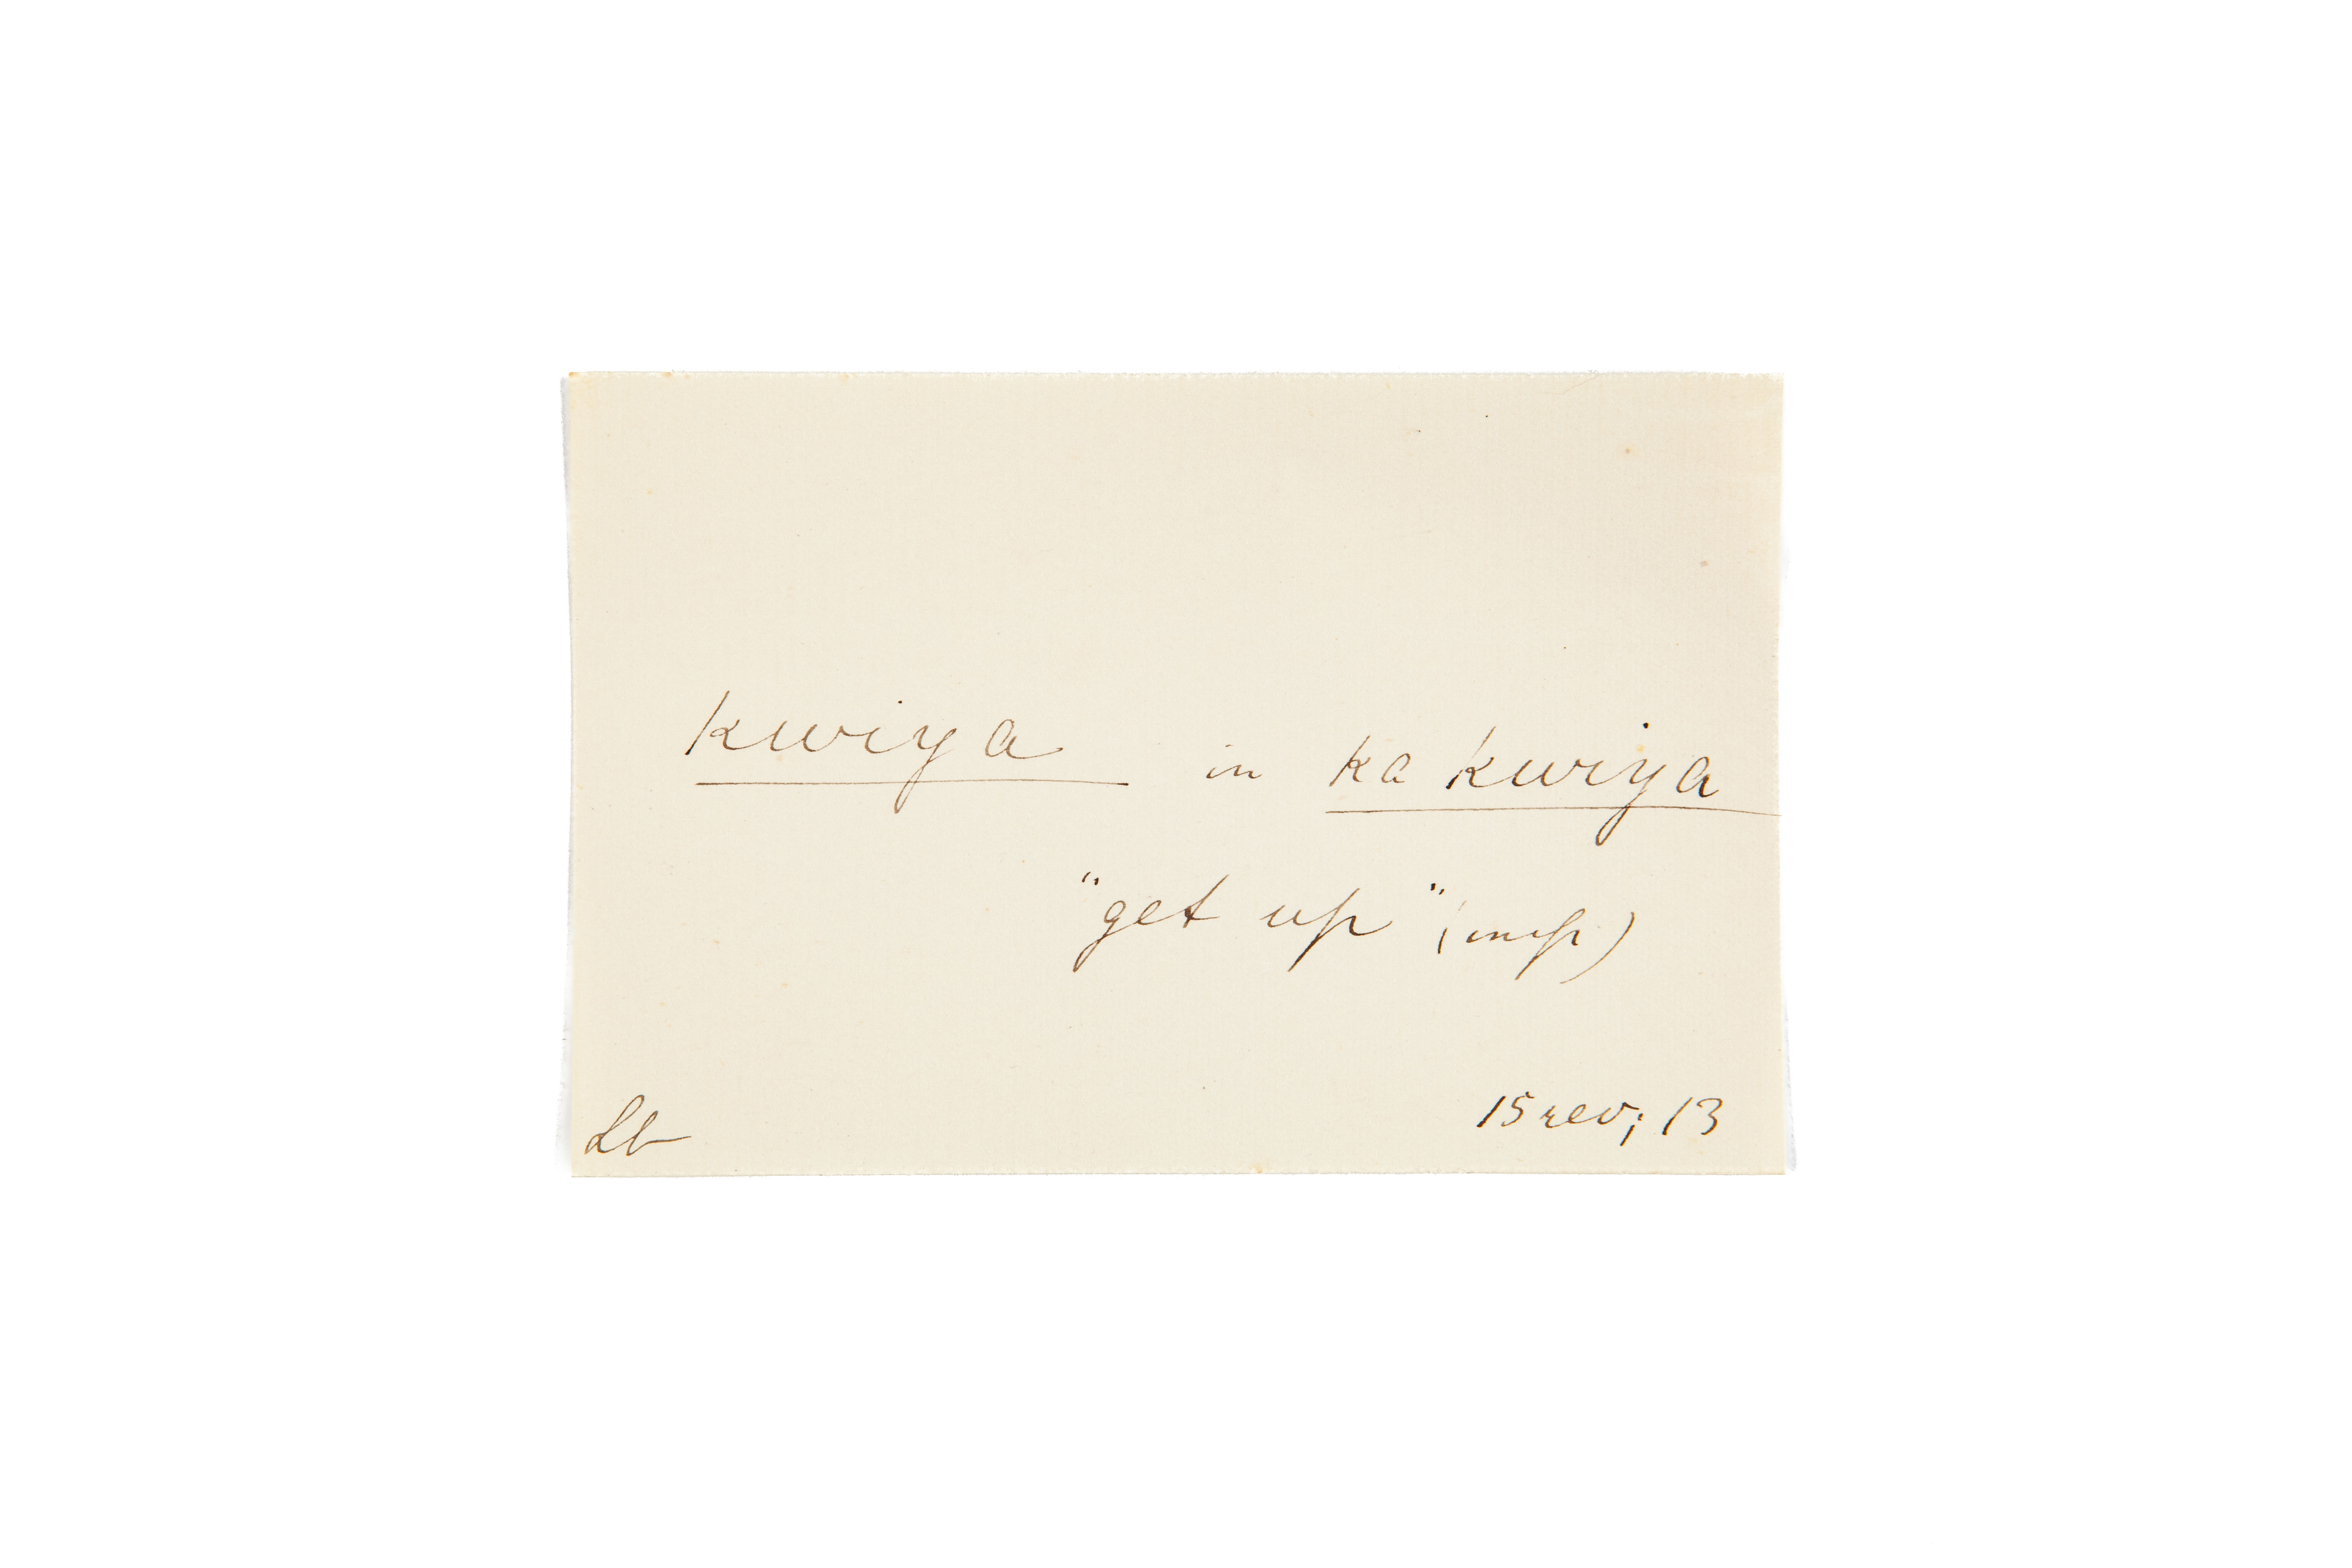 kwiya in ka kwiya
"get up" (imp)
Lb 15 rev; 13